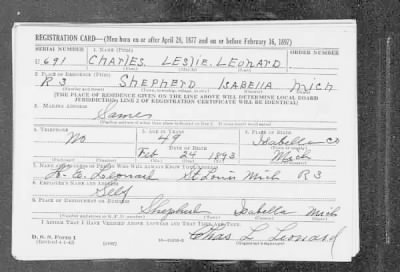 REGISTRATION CARD—(Men born on or after April 28, 1877 and on or before February 16, 1897)
SERIAL NUMBER 1. NAME (Print)
U 691 CHARLES LESLIE LEONARD
2. PLACE OF RESIDENCE (Print)
R 3 SHEPHERD ISABELLA MICH
[THE PLACE OF RESIDENCE GIVEN ON THE LINE ABOVE WILL DETERMINE LOCAL BOARD
JURISDICTION; LINE 2 OF REGISTRATION CERTIFICATE WILL BE IDENTICAL]
3. MAILING ADDRESS
Same
4. TELEPHONE 5. AGE IN YEARS 6. PLACE OF BIRTH
No 49 Isabella Co
DATE OF BIRTH
Feb 24 1893 Mich
7. NAME AND ADDRESS OF PERSON WHO WILL ALWAYS KNOW YOUR ADDRESS
Leonard St Louis Mich R 3
8. EMPLOYER'S NAME AND ADDRESS
Self
9. PLACE OF EMPLOYMENT OR BUSINESS
Shepherd Isabella Mich
I AFFIRM THAT I HAVE VERIFIED ABOVE ANSWERS AND THAT THEY ARE TRUE.
D. S. S. Form 1
Chas L Leonard